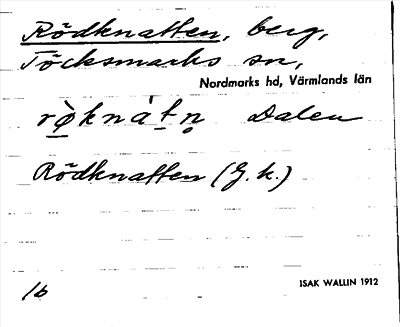 Rödknatten, berg,
Töcksmarks sn,
Nordmarks hd, Värmlands län
rø̀knàtn̥ Dalen
Rödknatten (G.k.)
16
ISAK WALLIN 1912